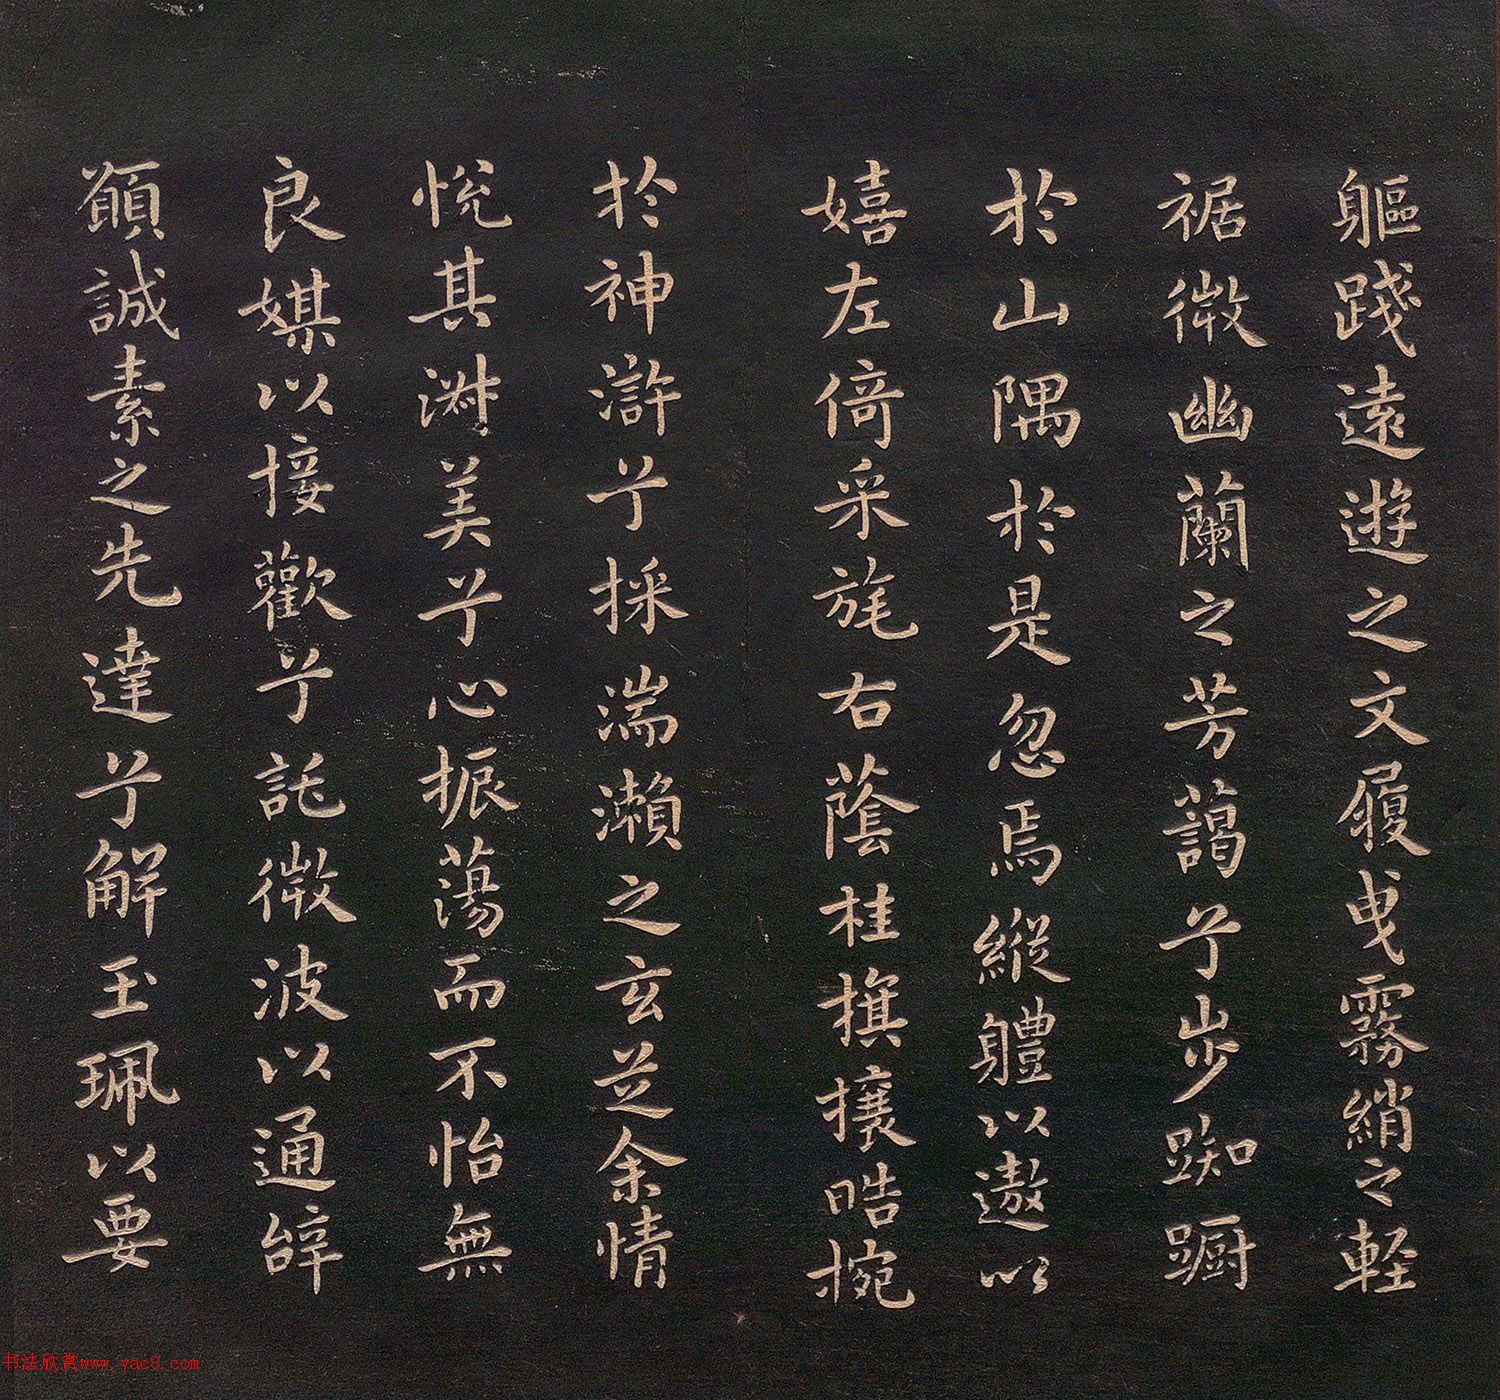 軀踐遠遊之文履曳霧綃之軽
裾微幽蘭之芳藹兮步踟躕
於山隅於是忽焉縱軆以遨以
嬉左倚采旄右蔭桂旗攘皓捥
於神滸兮採湍瀨之玄芝余情
悅其淋美兮心振蕩而不怡無
良媒以接歡兮託微波以通辝
願誠素之先達兮解玉珮以要
书法欣赏www.yac8.com